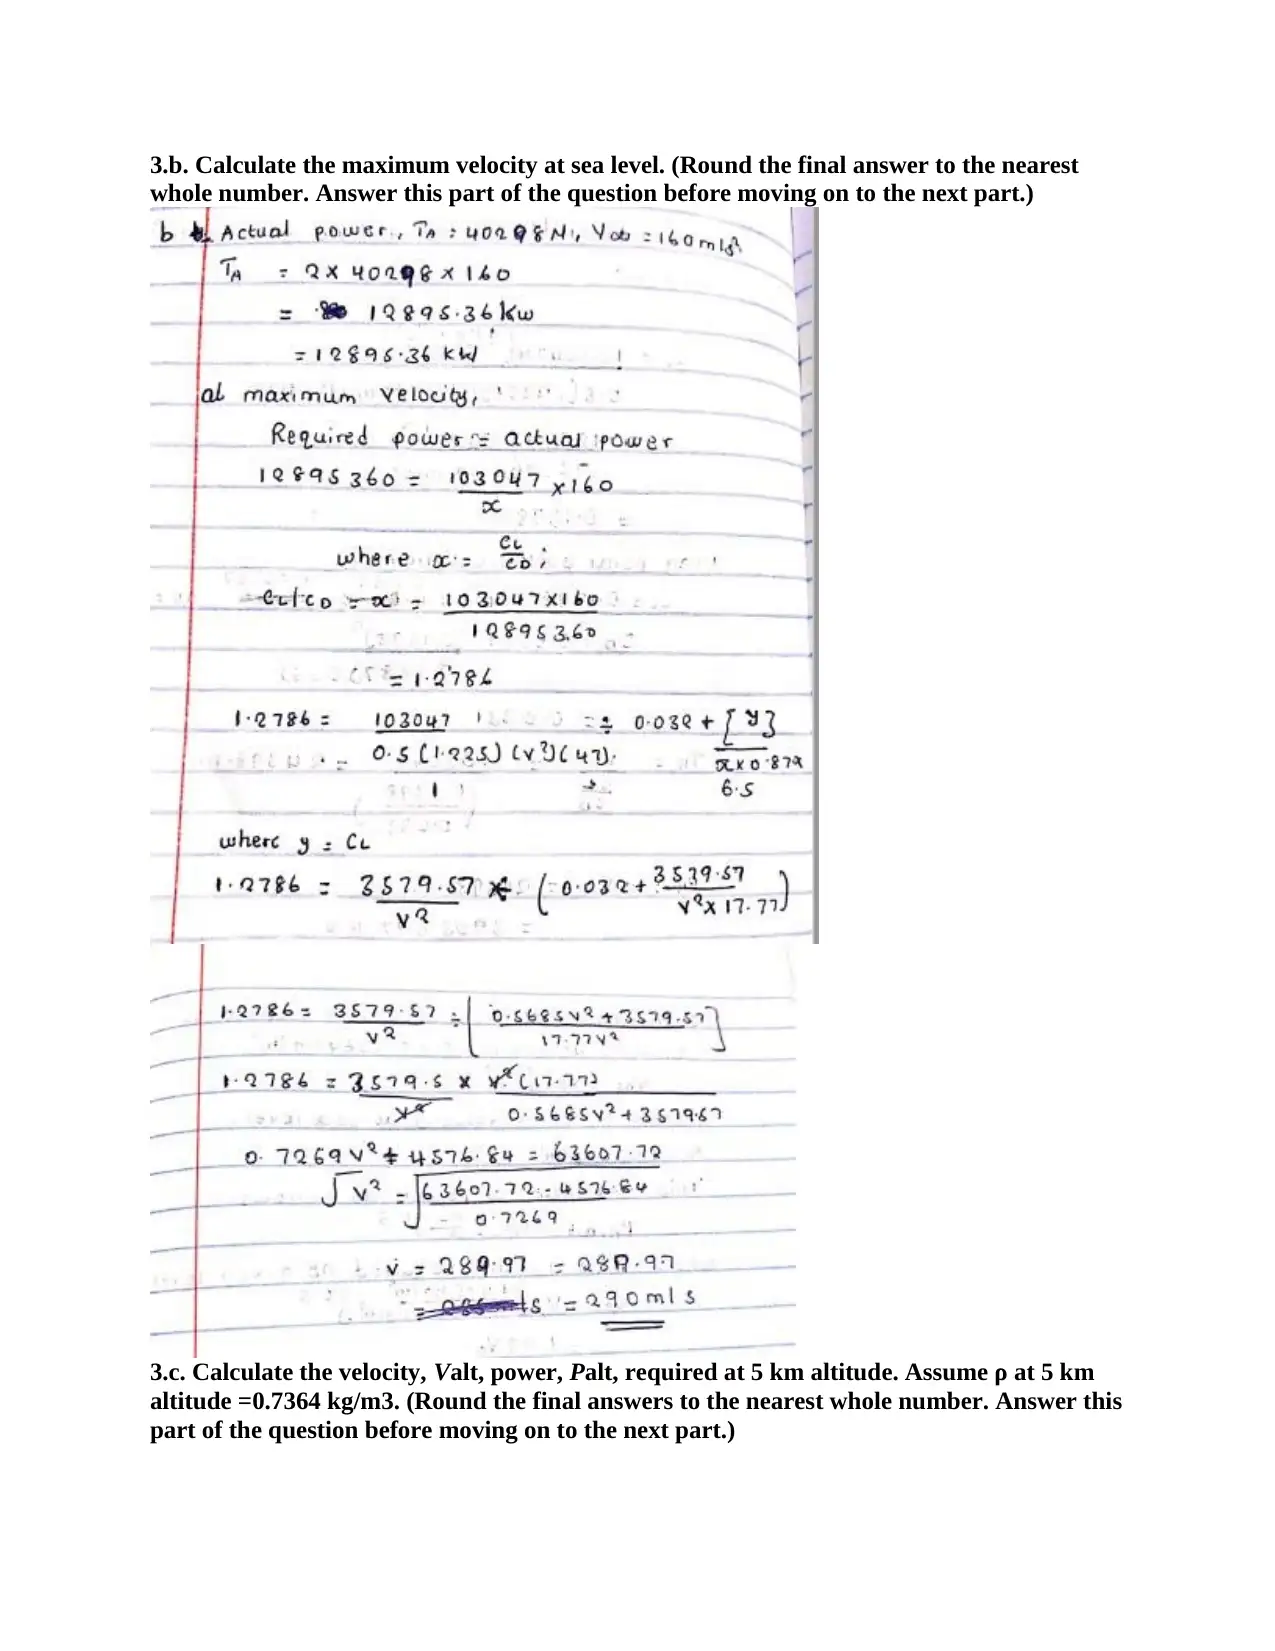 3.b. Calculate the maximum velocity at sea level. (Round the final answer to the nearest
whole number. Answer this part of the question before moving on to the next part.)
b Actual power, TA : 40298 N, V∞ = 160 m/s
TA = 2 x 40298 x 160
= 12895.36 kw
= 12895.36 kW
at maximum velocity,
Required power = actual power
12895360 = 103047/x x 160
where x = CL/CD ;
CL/CD = x = 103047x160 / 12895360
= 1.2786
1.2786 = 103047 / 0.5 (1.225) (v²) (47) ÷ 0.032 + [y] / π x 0.87x 6.5
1
where y = CL
1.2786 = 3579.57/v² ÷ (0.032 + 3539.57/v² x 17.77)
1.2786 = 3579.57/v² ÷ [0.5685v² + 3579.57 / 17.77v²]
1.2786 = 3579.5/v² x v²(17.77) / 0.5685v² + 3579.57
0.7269v² + 4576.84 = 63607.72
√v² = √63607.72 - 4576.84 / 0.7269
v = 289.97 = 289.97
= 290 m/s
3.c. Calculate the velocity, Valt, power, Palt, required at 5 km altitude. Assume ρ at 5 km
altitude =0.7364 kg/m3. (Round the final answers to the nearest whole number. Answer this
part of the question before moving on to the next part.)